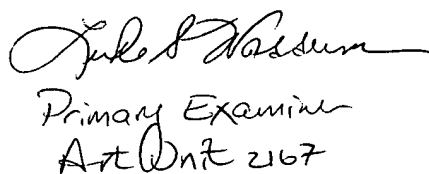 Luke S. Wassum
Primary Examiner
Art Unit 2167